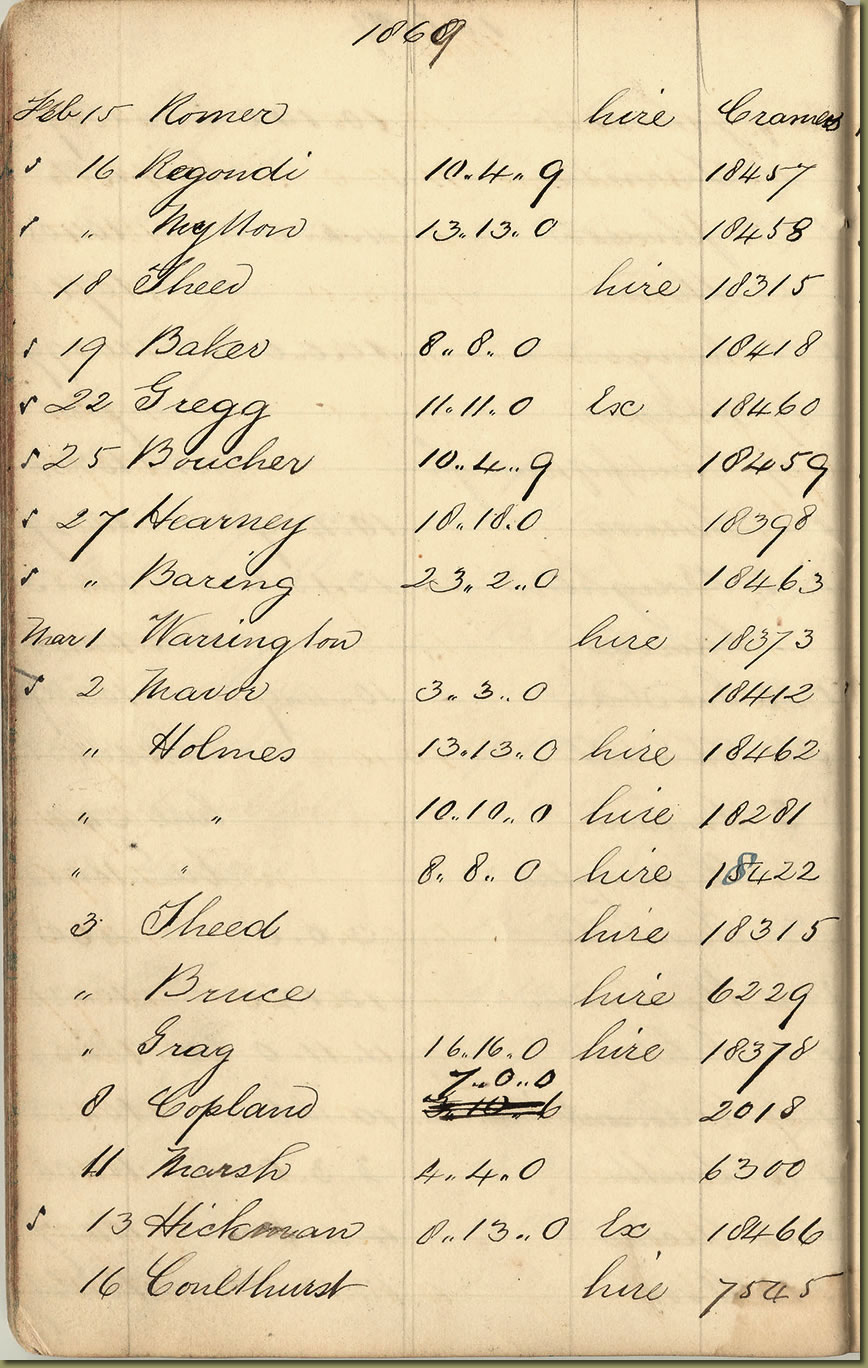 1869
Feb 15 Romer hire Cramers
s 16 Regondi 10..4..9 18457
s " Mytton 13..13..0 18458
18 Theed hire 18315
s 19 Baker 8..8..0 18418
s 22 Gregg 11..11..0 Ex 18460
s 25 Boucher 10..4..9 18459
s 27 Hearney 18..18..0 18398
s " Baring 23..2..0 18463
Mar 1 Warrington hire 18373
s 2 Mavor 3..3..0 18412
" Holmes 13..13..0 hire 18462
" " 10..10..0 hire 18281
" " 8..8..0 hire 18422
3 Theed hire 18315
" Bruce hire 6229
" Grag 16..16..0 hire 18378
7..0..0
8 Copland 3..10..6 2018
11 Marsh 4..4..0 6300
s 13 Hickman 8..13..0 Ex 18466
16 Coulthurst hire 7545